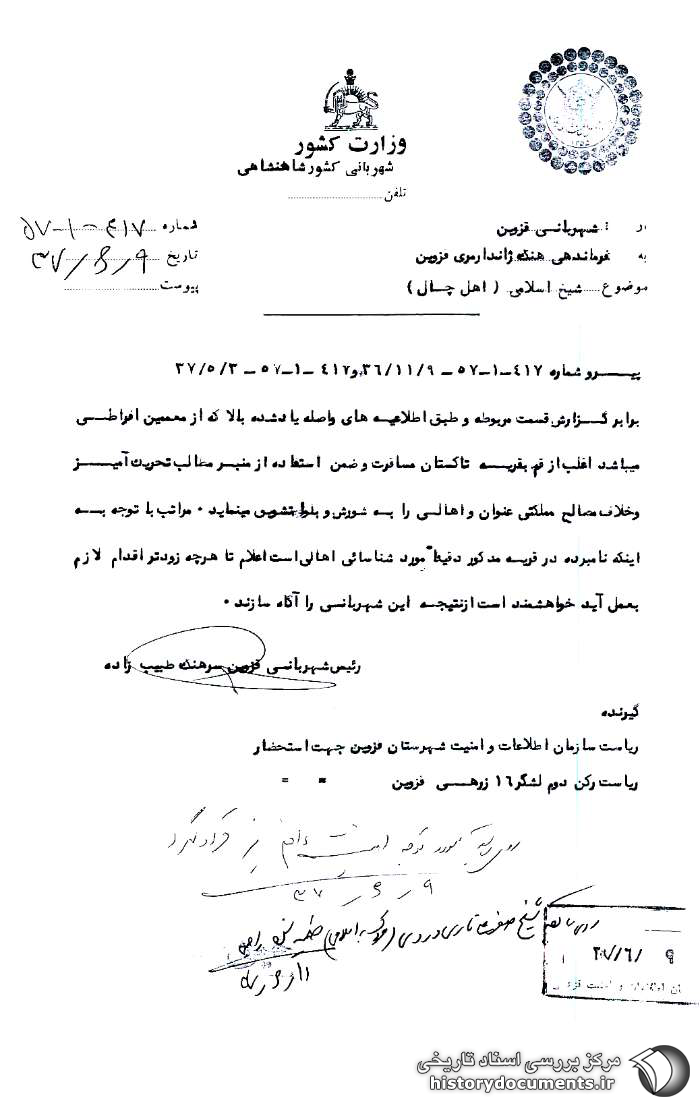 وزارت کشور
شهربانی کشور شاهنشاهی
تلفن
از : شهربانی قزوین
به فرماندهی هنگ ژاندارمری قزوین
موضوع شیخ اسلامی ( اهل چال )
شماره ۴۱۷-۱-۵۷
تاریخ ۳۷/۶/۹
پیوست
پیرو شماره ۴۱۷-۱-۵۷ - ۳۶/۱۱/۹ و ۴۱۷-۱-۵۷ - ۳۷/۵/۳
برابر گزارش قسمت مربوطه و طبق اطلاعیه های واصله یادشده بالا که از معممین افراطی
میباشد اغلب از قم بقریه تاکستان مسافرت و ضمن استفاده از منبر مطالب تحریک آمیز
و خلاف مصالح مملکتی عنوان و اهالی را به شورش و بلوا تشویق مینماید . مراتب با توجه به
اینکه نامبرده در قریه مذکور دقیقاً مورد شناسائی اهالی است اعلام تا هرچه زودتر اقدام لازم
بعمل آید خواهشمند است از نتیجه این شهربانی را آگاه سازند .
رئیس شهربانی قزوین سرهنگ طبیب زاده
گیرنده
ریاست سازمان اطلاعات و امنیت شهرستان قزوین جهت استحضار
ریاست رکن دوم لشگر ۱۶ زرهی قزوین = =
مورد توجه است قرار گیرد
۳۷/۶/۹
شیخ
۳۷/۶/۹
مرکز بررسی اسناد تاریخی
historydocuments.ir